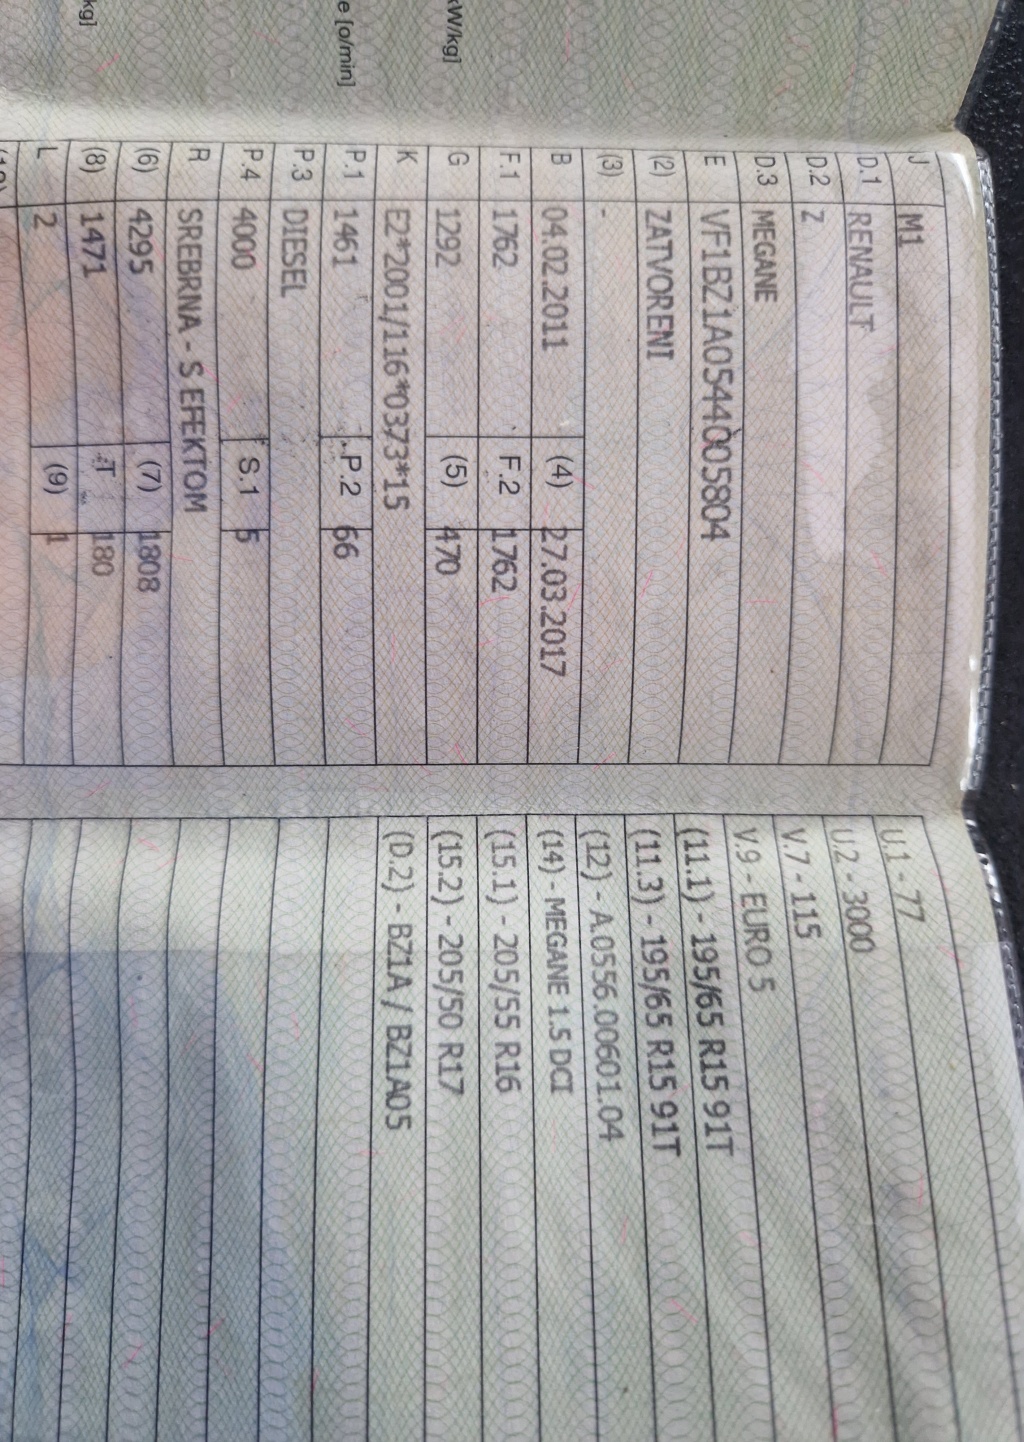 kW/kg]
e [o/min]
kg]
J M1
D.1 RENAULT
D.2 Z
D.3 MEGANE
E VF1BZ1A0544005804
(2) ZATVORENI
(3) -
B 04.02.2011 (4) 27.03.2017
F.1 1762 F.2 1762
G 1292 (5) 470
K E2*2001/116*0373*15
P.1 1461 P.2 66
P.3 DIESEL
P.4 4000 S.1 5
R SREBRNA - S EFEKTOM
(6) 4295 (7) 1808
(8) 1471 T 180
L 2 (9) 1
U.1 - 77
U.2 - 3000
V.7 - 115
V.9 - EURO 5
(11.1) - 195/65 R15 91T
(11.3) - 195/65 R15 91T
(12) - A.0556.00601.04
(14) - MEGANE 1.5 DCI
(15.1) - 205/55 R16
(15.2) - 205/50 R17
(D.2) - BZ1A / BZ1A05